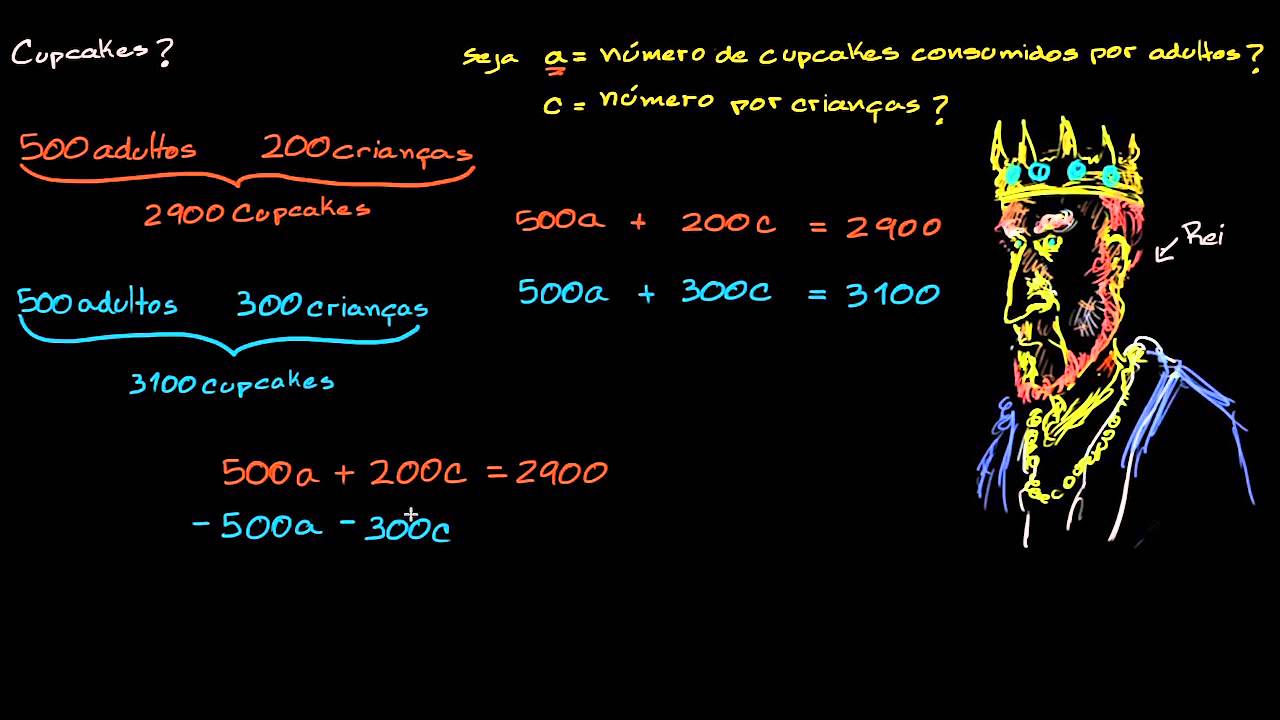 Cupcakes?
seja a = número de cupcakes consumidos por adultos?
c = número por crianças?
500 adultos 200 crianças
2900 Cupcakes
500a + 200c = 2900
Rei
500 adultos 300 crianças
500a + 300c = 3100
3100 cupcakes
500a + 200c = 2900
- 500a - 300c